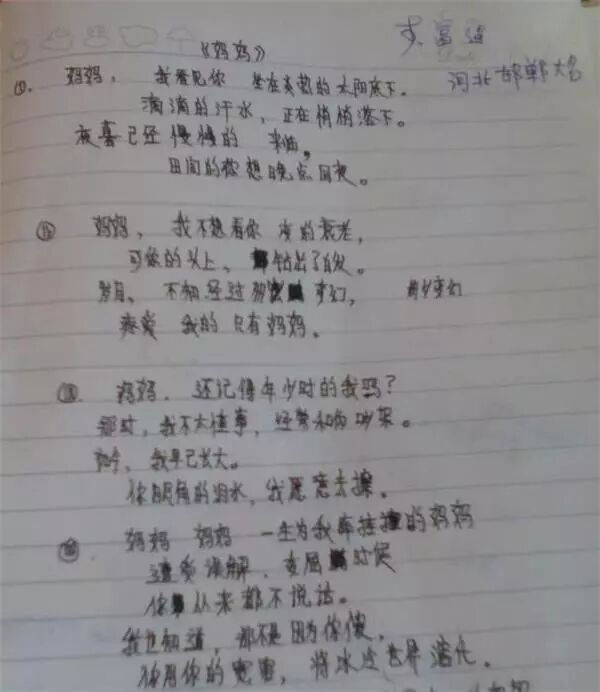 《妈妈》
河北邯郸大名
①. 妈妈, 我看见你 坐在炎热的太阳底下.
滴滴的汗水, 正在悄悄落下。
夜幕已经慢慢的 来临。
田间的你想晚点回夜。
妈妈、我不想看你 变的衰老,
可你的头上、都钻出了白发。
岁月、不知经过多少 梦幻,
疼爱 我的 只有妈妈。
妈妈. 还记得年少时的我吗?
那时, 我不大懂事, 经常和你吵架。
如今, 我早已长大。
你眼角的泪水, 我愿意去擦.
妈妈 妈妈 一生为我牵挂的妈妈
遭受误解、委屈 时候
你 从来都不说话。
我也知道, 那不是因为你傻,
你用你的宽容, 将冰过去